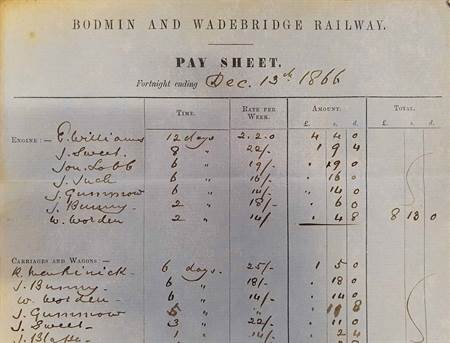 BODMIN AND WADEBRIDGE RAILWAY.
PAY SHEET.
Fortnight ending Dec. 13th 1866
TIME. RATE PER WEEK. AMOUNT. TOTAL.
£. s. d. £. s. d.
ENGINE:— E. Williams 12 days 2.2.0 4 4 0
J. Sweet 8 " 22/- 1 9 4
Jon. Lobb 6 " 19/- . 19 0
J. Tuck 6 " 16/- . 16 0
J. Gummow 6 " 14/- " 14 0
J. Bunny 2 " 18/- . 6 0
W. Worden 2 " 14/- . 4 8 8 13 0
CARRIAGES AND WAGONS:—
R. 6 days. 25/- 1 5 0
J. Bunny 6 " 18/- . 18 0
W. Worden 6 " 14/- . 14 0
J. Gummow 5 " 11 8
J. Sweet 3 " 22/- . 11 0
J. 1 " 14/- . 2 4